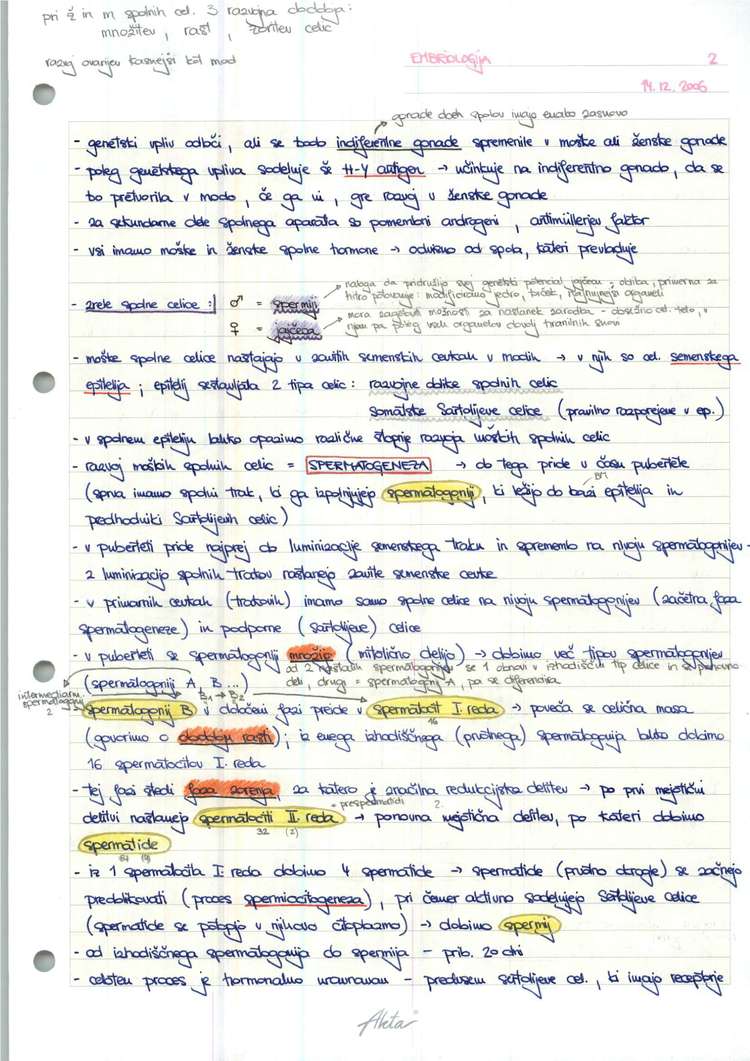 pri ž in m spolnih cel. 3 razvojna obdobja:
množitev, rast, zoritev celic
razvoj ovarijev kasnejši kot mod
EMBRIOLOGIJA 2
14.12.2006
gonade obeh spolov imajo enako zasnovo
- genetski vpliv odloči, ali se bodo indiferentne gonade spremenile v moške ali ženske gonade
- poleg genetskega vpliva sodeluje še H-Y antigen → učinkuje na indiferentno gonado, da se
bo pretvorila v modo, če ga ni, gre razvoj v ženske gonade
- za sekundarne dele spolnega aparata so pomembni androgeni, antimüllerjev faktor
- vsi imamo moške in ženske spolne hormone → odvisno od spola, kateri prevladuje
naloga da pridružijo svoj genetski potencial jajčecu; oblika, primerna za
- zrele spolne celice: ♂ = spermiji hitro potovanje: modificirano jedro, biček, najnujnejši organeli
mora zagotoviti možnosti za nastanek zarodka - obsežno cel. telo, v
♀ = jajčeca njem pa poleg vseh organelov obvolj hranilnih snovi
- moške spolne celice nastajajo v zavitih semenskih cevkah v modih → v njih so cel. semenskega
epitelija; epitelij sestavljata 2 tipa celic: razvojne oblike spolnih celic
somatske Sertolijeve celice (pravilno razporejene v ep.)
- v spolnem epiteliju lahko opazimo različne stopnje razvoja moških spolnih celic
- razvoj moških spolnih celic = SPERMATOGENEZA → do tega pride v času pubertete
(sprva imamo spolni trak, ki ga izpolnjujejo spermatogoniji, ki ležijo ob bazi epitelija in
BM
predhodniki Sertolijevih celic)
- v puberteti pride najprej do luminizacije semenskega traku in spremembo na nivoju spermatogonijev -
z luminizacijo spolnih trakov nastanejo zavite semenske cevke
- v primarnih cevkah (trakovih) imamo samo spolne celice na nivoju spermatogonijev (začetna faza
spermatogeneze) in podporne (sertolijeve) celice
- v puberteti se spermatogoniji množijo (mitotično delijo) → dobimo več tipov spermatogonijev
od 2 nastalih spermatogonijev se 1 obnovi v izhodiščni tip celice in se ponovno
(spermatogoniji A, B ...) deli, drugi = spermatogonij A, pa se diferencira
intermediarni spermatogonij B1 → B2
2 spermatogoniji B v določeni fazi preide v spermatocit I. reda → poveča se celična masa
16
(govorimo o obdobju rasti); iz enega izhodiščnega (prvotnega) spermatogonija lahko dobimo
16 spermatocitov I. reda
- tej fazi sledi faza zorenja, za katero je značilna redukcijska delitev → po prvi mejotični
= prespermatidi 2.
delitvi nastanejo spermatociti II. reda → ponovna mejotična delitev, po kateri dobimo
32 (2)
spermatide
64 (4)
- iz 1 spermatocita I. reda dobimo 4 spermatide → spermatide (prvotno okrogle) se začnejo
preoblikovati (proces spermiocitogeneza), pri čemer aktivno sodelujejo Sertolijeve celice
(spermatide se potopijo v njihovo citoplazmo) → dobimo spermij
- od izhodiščnega spermatogonija do spermija - prib. 70 dni
- celoten proces je hormonalno uravnavan - predvsem sertolijeve cel., ki imajo receptorje
Akta